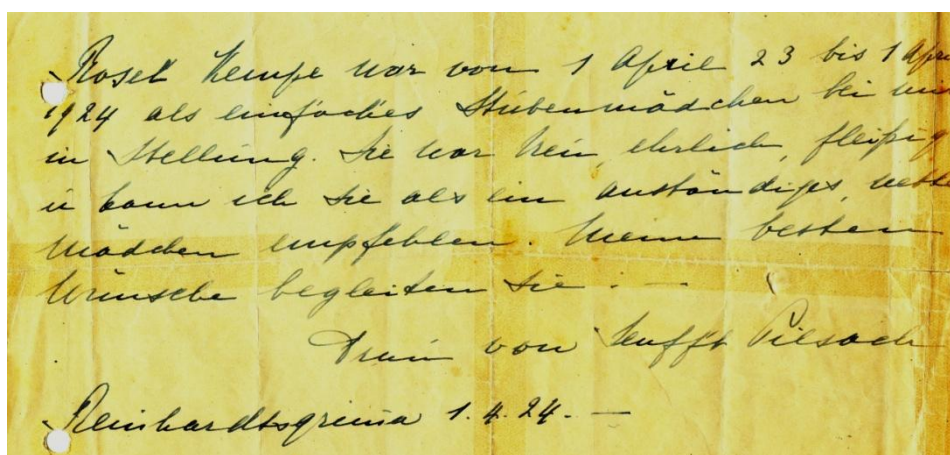 Rosel Kempe war von 1 April 23 bis 1 April
1924 als einfaches Stubenmädchen bei mir
in Stellung. Sie war treu, ehrlich, fleißig
u kann ich sie als ein anständiges, nettes
Mädchen empfehlen. Meine besten
Wünsche begleiten sie. —
von Senfft Pilsach
Reinhardtsgrima 1.4.24. —